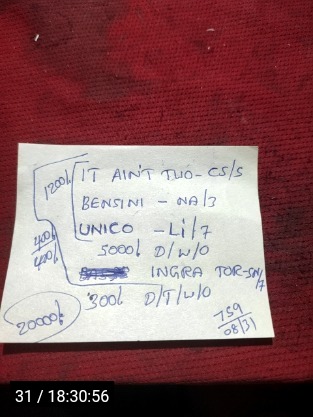 1200/. IT AIN'T TWO - CS/5
BENSINI - NA/3
UNICO - Li/7
5000/. D/W/O
400/.
400/. INGRA TOR-SN/7
300/. D/T/W/O
20000/.
759
08/31
31 / 18:30:56